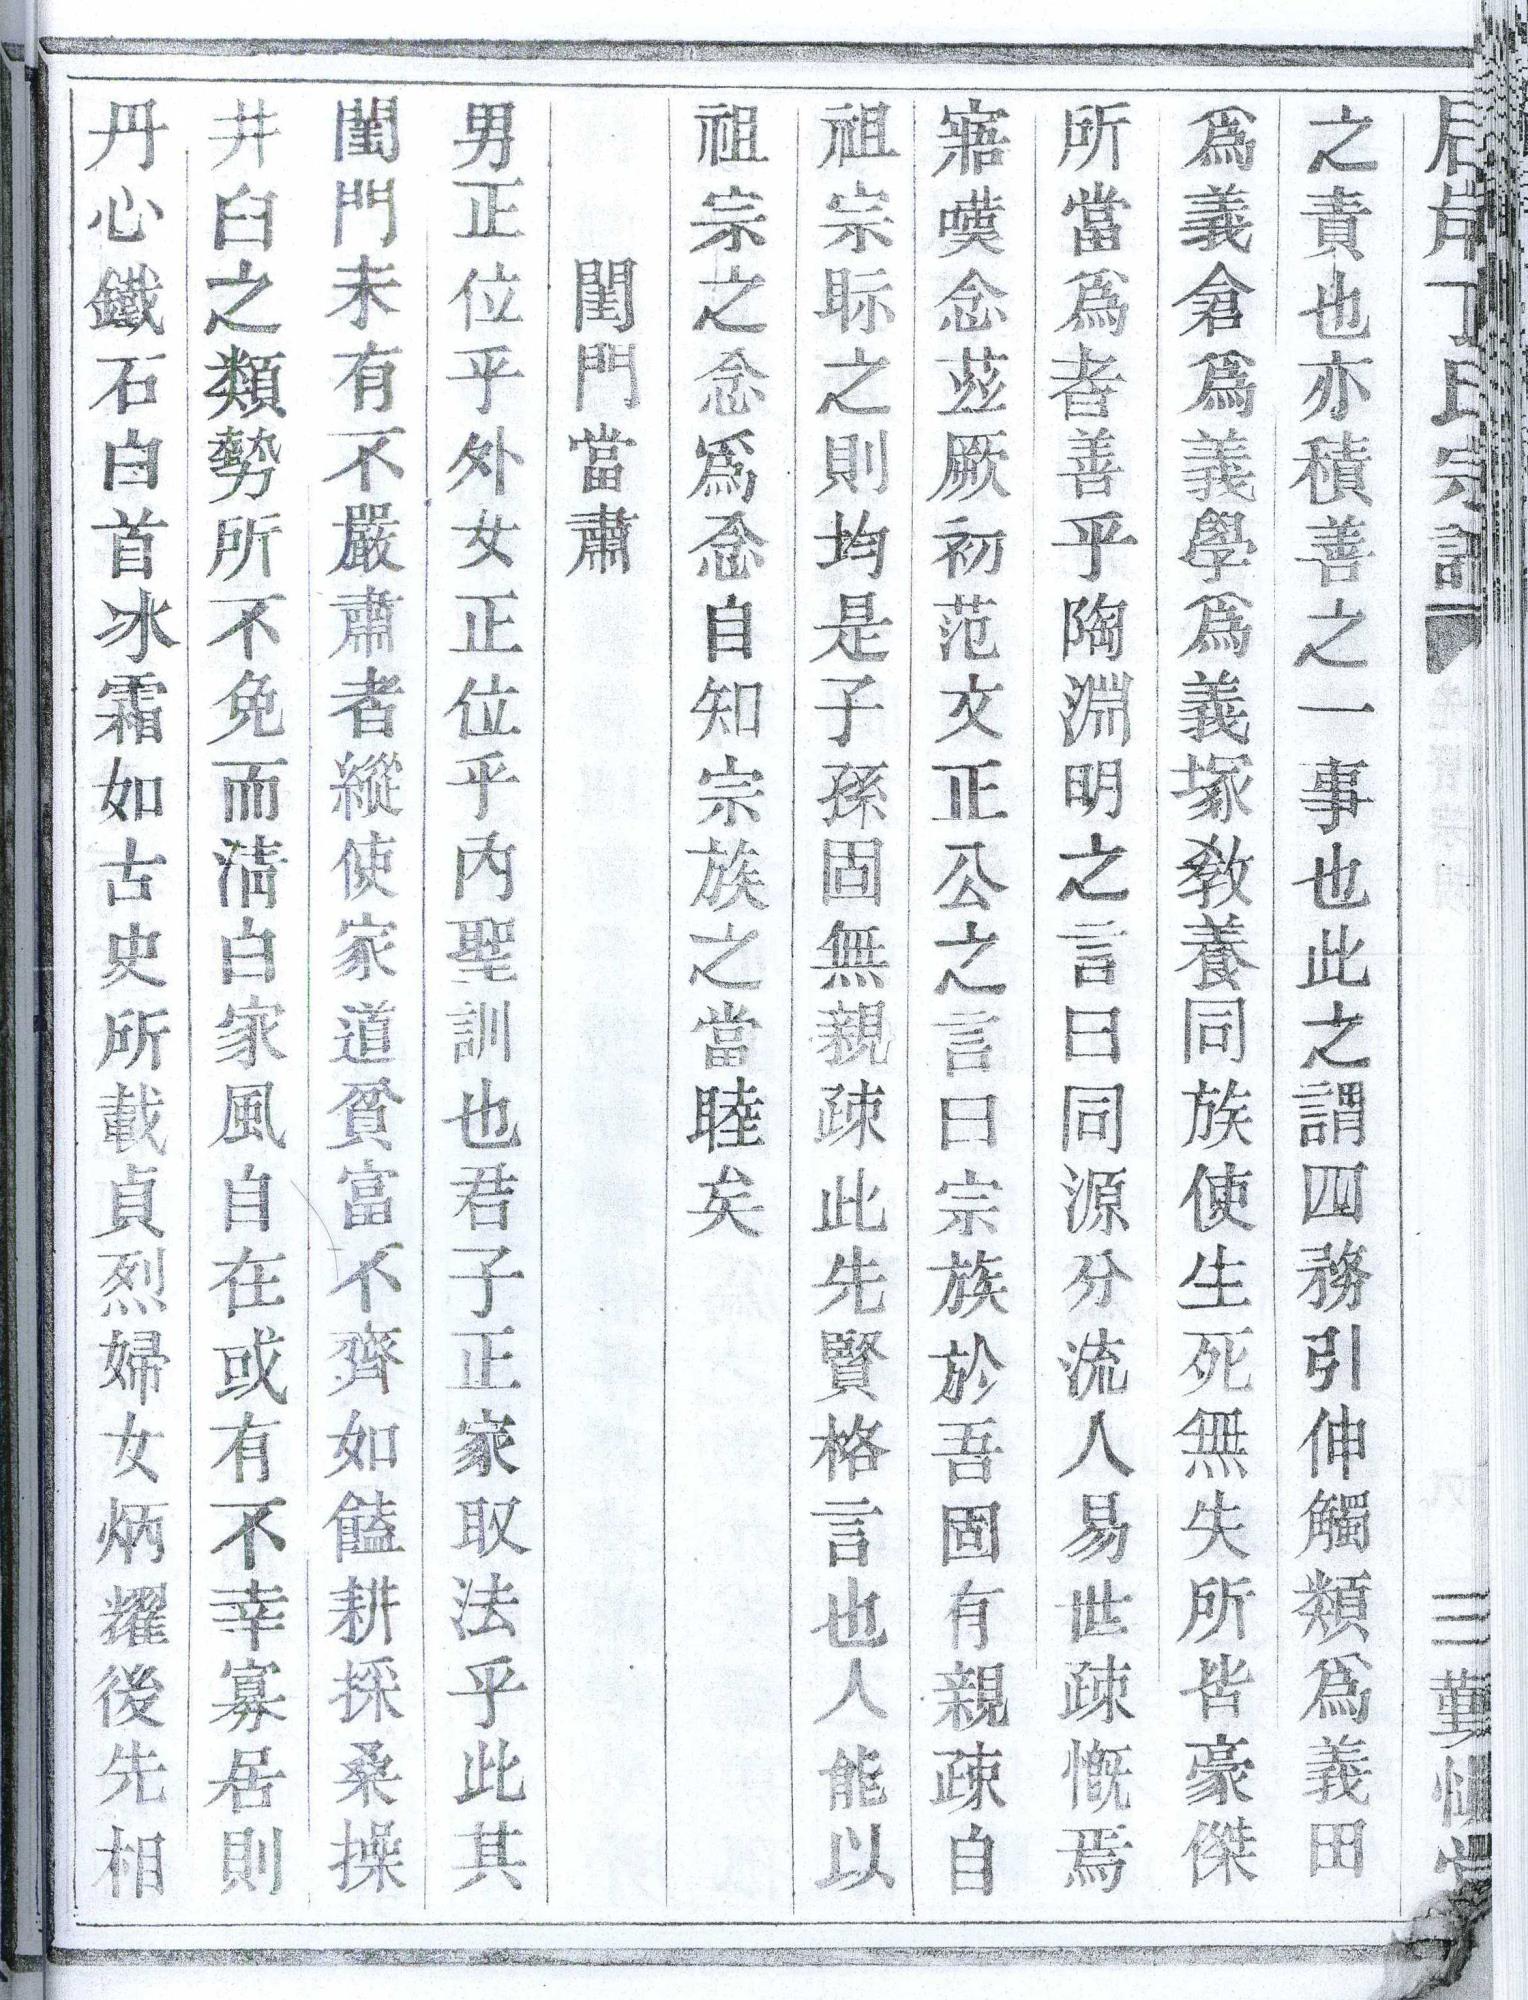 丁氏宗譜
三勤慎堂
之責也亦積善之一事也此之謂四務引伸觸類爲義田
爲義倉爲義學爲義塚敎養同族使生死無失所皆豪傑
所當爲者善乎陶淵明之言曰同源分流人易世疎慨焉
寤嘆念茲厥初范文正公之言曰宗族於吾固有親疎自
祖宗眎之則均是子孫固無親疎此先賢格言也人能以
祖宗之念爲念自知宗族之當睦矣
閨門當肅
男正位乎外女正位乎內聖訓也君子正家取法乎此其
閨門未有不嚴肅者縱使家道貧富不齊如饁耕採桑操
井臼之類勢所不免而淸白家風自在或有不幸寡居則
丹心鐵石白首冰霜如古史所載貞烈婦女炳耀後先相